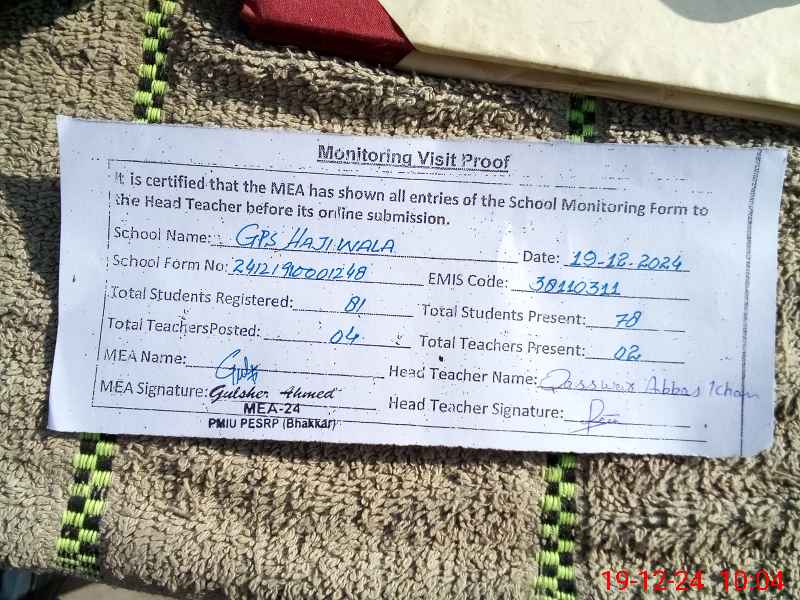 Monitoring Visit Proof
It is certified that the MEA has shown all entries of the School Monitoring Form to
the Head Teacher before its online submission.
School Name: GPS HAJIWALA Date: 19-12-2024
School Form No: 2412190001248 EMIS Code: 38110311
Total Students Registered: 81 Total Students Present: 78
Total TeachersPosted: 04 Total Teachers Present: 02
MEA Name: Head Teacher Name: Qasswar Abbas Khan
MEA Signature: Gulsher Ahmed Head Teacher Signature:
MEA-24
PMIU PESRP (Bhakkar)
19-12-24 10:04